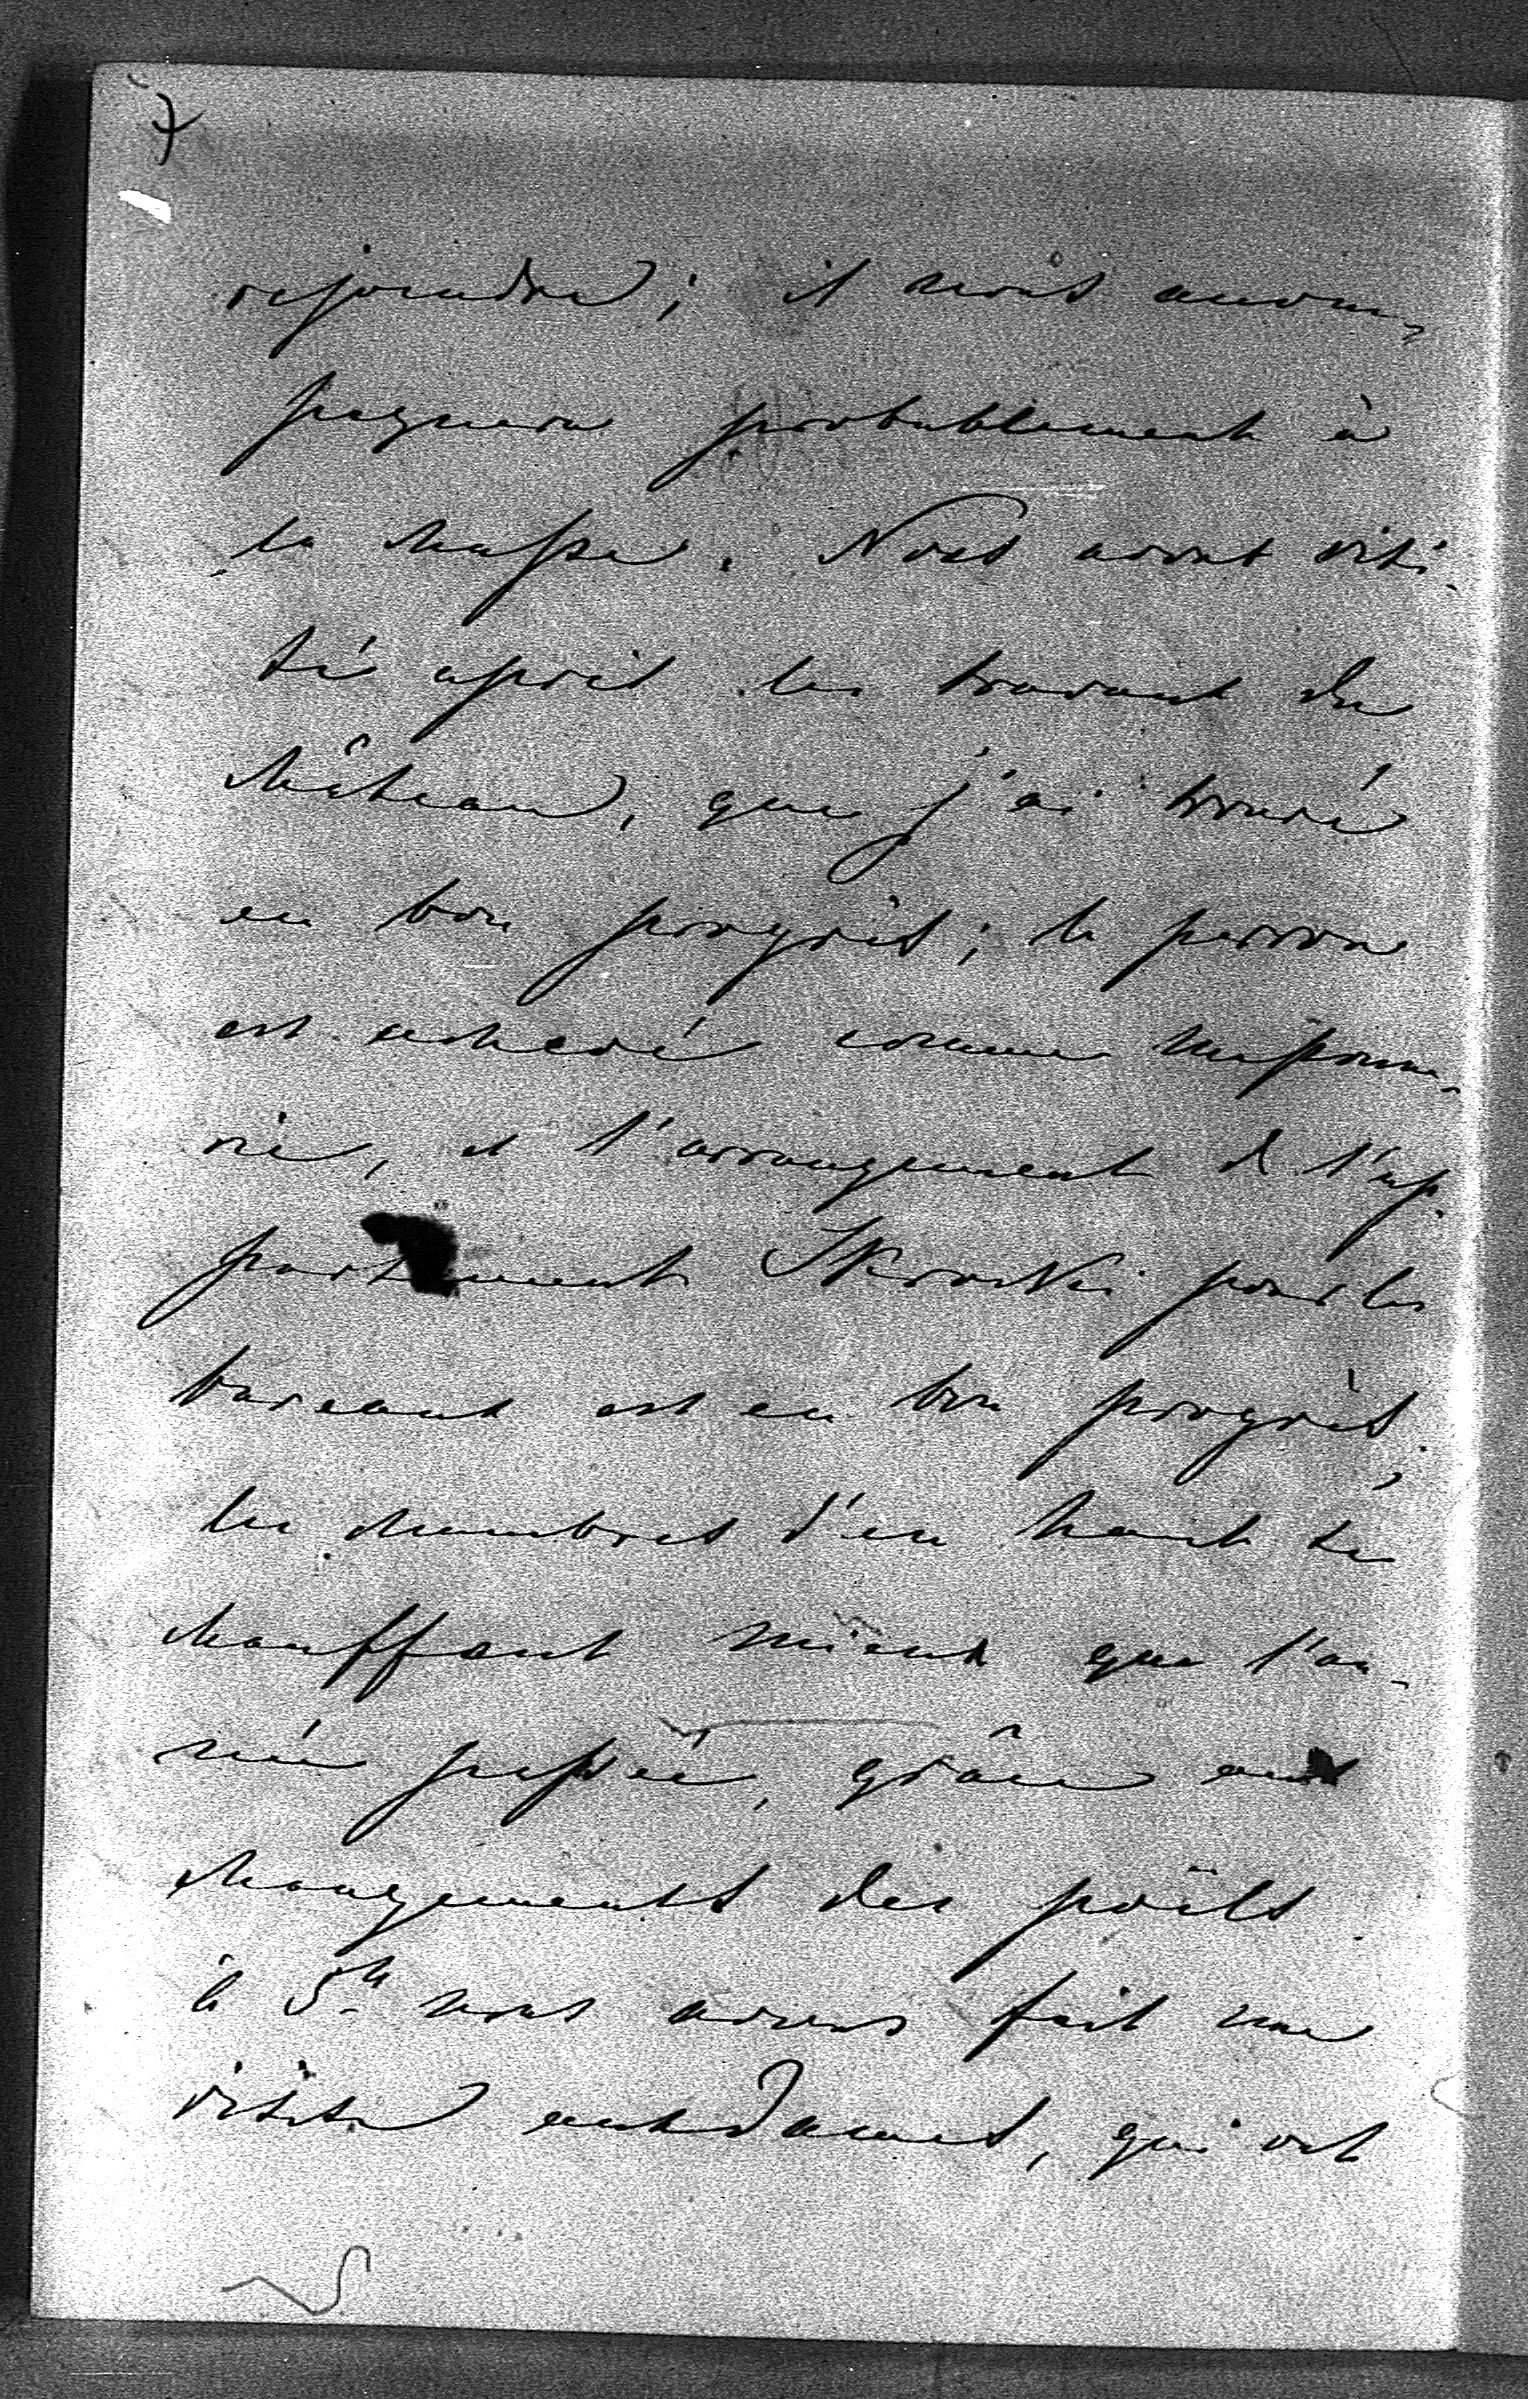 7
rejoindre; il nous accom-
pagnera probablement à
la chasse. Nous avons visi-
té après les travaux du
château, que j'ai trouvé
en bon progrès; le perron
est achevé comme maçonne-
rie, et l'arrangement de l'ap-
partement pour les
bureaux est en bon progrès,
les chambres d'en haut se
chauffent mieux que l'an-
née passée, grâce aux
changements des poêles
à 5h nous avons fait une
visite aux dames, qui ont